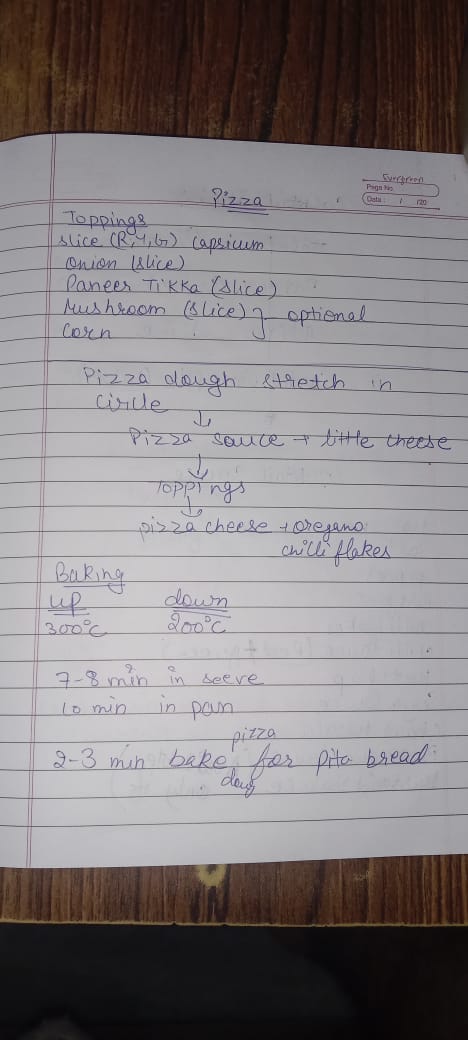 Evergreen
Page No.
Date : / /20
Pizza
Toppings
Slice (R,Y,G) Capsicum
Onion (slice)
Paneer Tikka (slice)
Mushroom (slice) } optional
Corn
Pizza dough stretch in
circle
↓
Pizza sauce + little cheese
↓
Toppings
↓
pizza cheese + oregano
chilli flakes
Baking
up down
300°C 200°C
7-8 min in seeve
10 min in pan
pizza
2-3 min bake for pita bread
doug